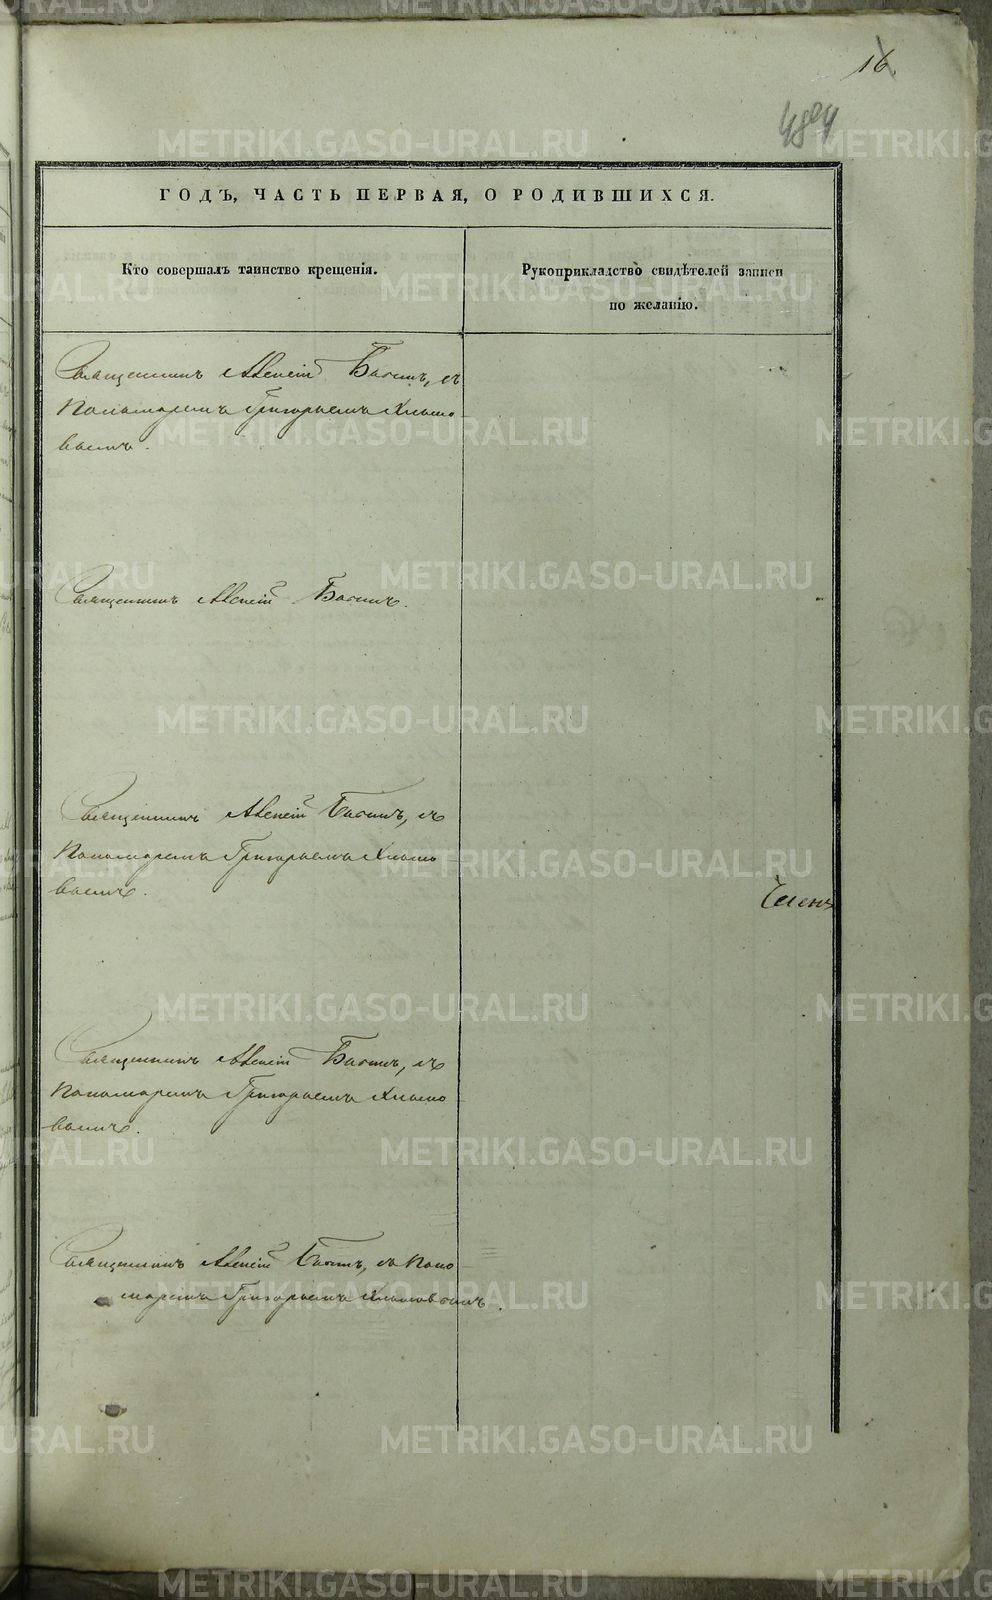 16.
ГОДЪ, ЧАСТЬ ПЕРВАЯ, О РОДИВШИХСЯ.
Кто совершалъ таинство крещенія.
Рукоприкладство свидѣтелей записи
по желанію.
Священникъ Алексій съ
Пономаремъ Григорьемъ Хлыно
вымъ.
Священникъ Алексій
Священникъ Алексій съ
Пономаремъ Григорьемъ Хлыно
вымъ.
Членъ
Священникъ Алексій съ
Пономаремъ Григорьемъ Хлыно
вымъ.
Священникъ Алексій съ Поно
маремъ Григорьемъ Хлыновымъ.
METRIKI.GASO-URAL.RU